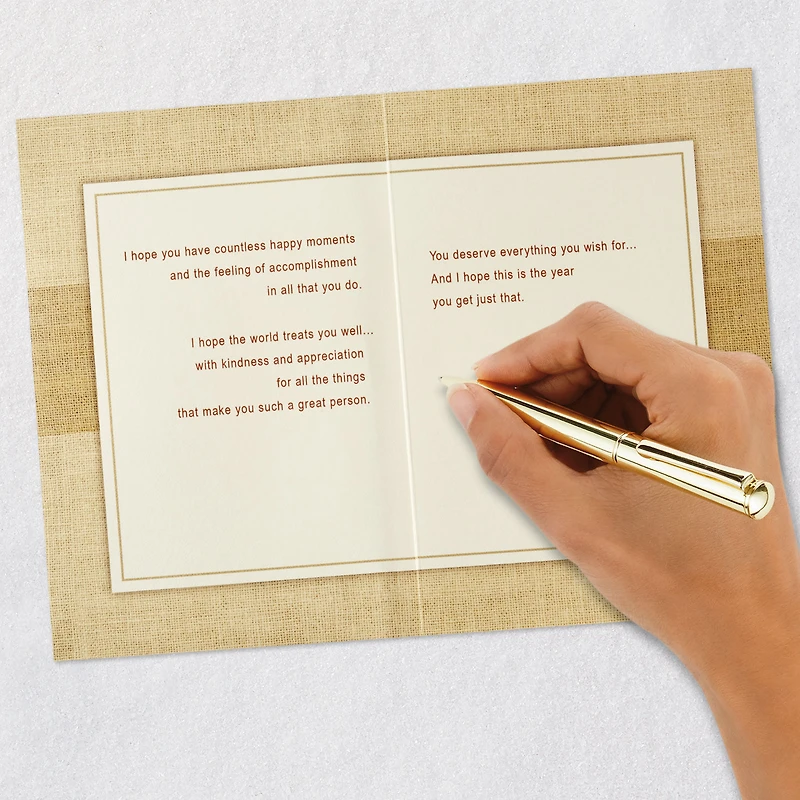 I hope you have countless happy moments
and the feeling of accomplishment
in all that you do.
I hope the world treats you well...
with kindness and appreciation
for all the things
that make you such a great person.
You deserve everything you wish for...
And I hope this is the year
you get just that.